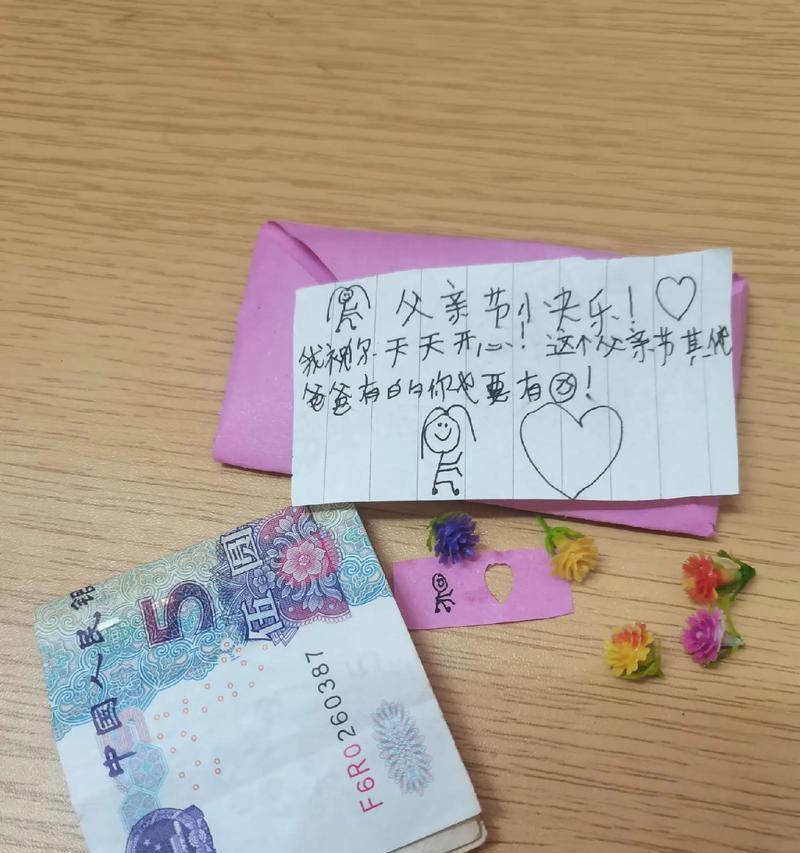 父亲节快乐!
我祝你天天开心!这个父亲节其他
爸爸有的你也要有!
中国人民
5
伍圆
F6R0260387